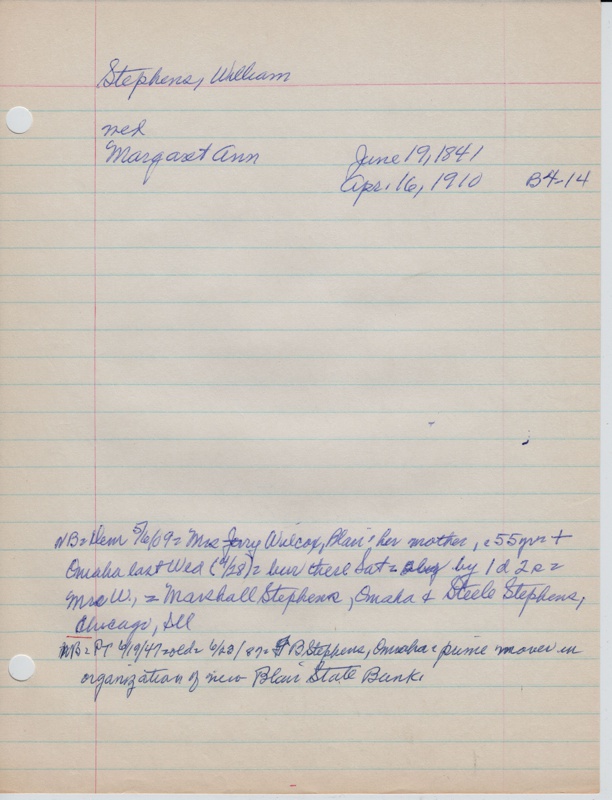 Stephens, William
med
Margaret Ann June 19, 1841
Apr. 16, 1910 B4-14
NB = Dem 5/6/09 = Mrs Jerry Wilcox, Blair: her mother, c 55 yrs +
Omaha last Wed (4/28) = bur there Sat = by 1 d 2 s =
Mrs W, = Marshall Stephens, Omaha & Steele Stephens,
Chicago, Ill
NB = PT 6/19/47 = = B Stephens, Omaha = prime mover in
organization of new Blair State Bank.